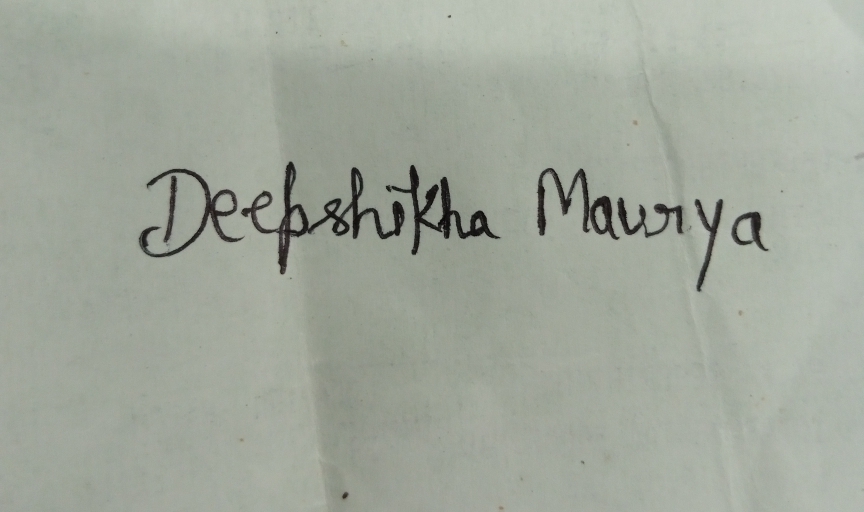 Deepshikha Maurya